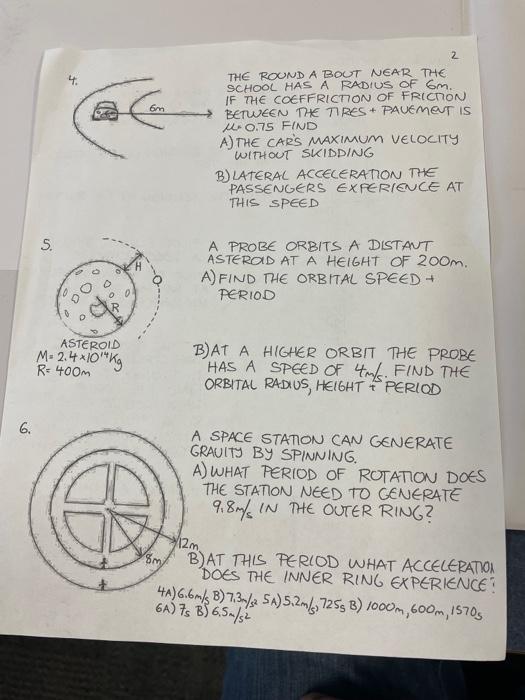 2
4.
6m
THE ROUND A BOUT NEAR THE
SCHOOL HAS A RADIUS OF 6m.
IF THE COEFFRICTION OF FRICTION
BETWEEN THE TIRES + PAVEMENT IS
μ= 0.75 FIND
A) THE CAR'S MAXIMUM VELOCITY
WITHOUT SKIDDING
B) LATERAL ACCELERATION THE
PASSENGERS EXPERIENCE AT
THIS SPEED
5.
H
R
ASTEROID
M= 2.4×10¹⁴Kg
R= 400m
A PROBE ORBITS A DISTANT
ASTEROID AT A HEIGHT OF 200m.
A) FIND THE ORBITAL SPEED +
PERIOD
B) AT A HIGHER ORBIT THE PROBE
HAS A SPEED OF 4m/s. FIND THE
ORBITAL RADIUS, HEIGHT + PERIOD
6.
12m
8m
A SPACE STATION CAN GENERATE
GRAVITY BY SPINNING.
A) WHAT PERIOD OF ROTATION DOES
THE STATION NEED TO GENERATE
9.8m/s IN THE OUTER RING?
B) AT THIS PERIOD WHAT ACCELERATION
DOES THE INNER RING EXPERIENCE?
4A) 6.6m/s B) 7.3m/s² 5A) 5.2m/s, 725s B) 1000m, 600m, 1570s
6A) 7s B) 6.5m/s²